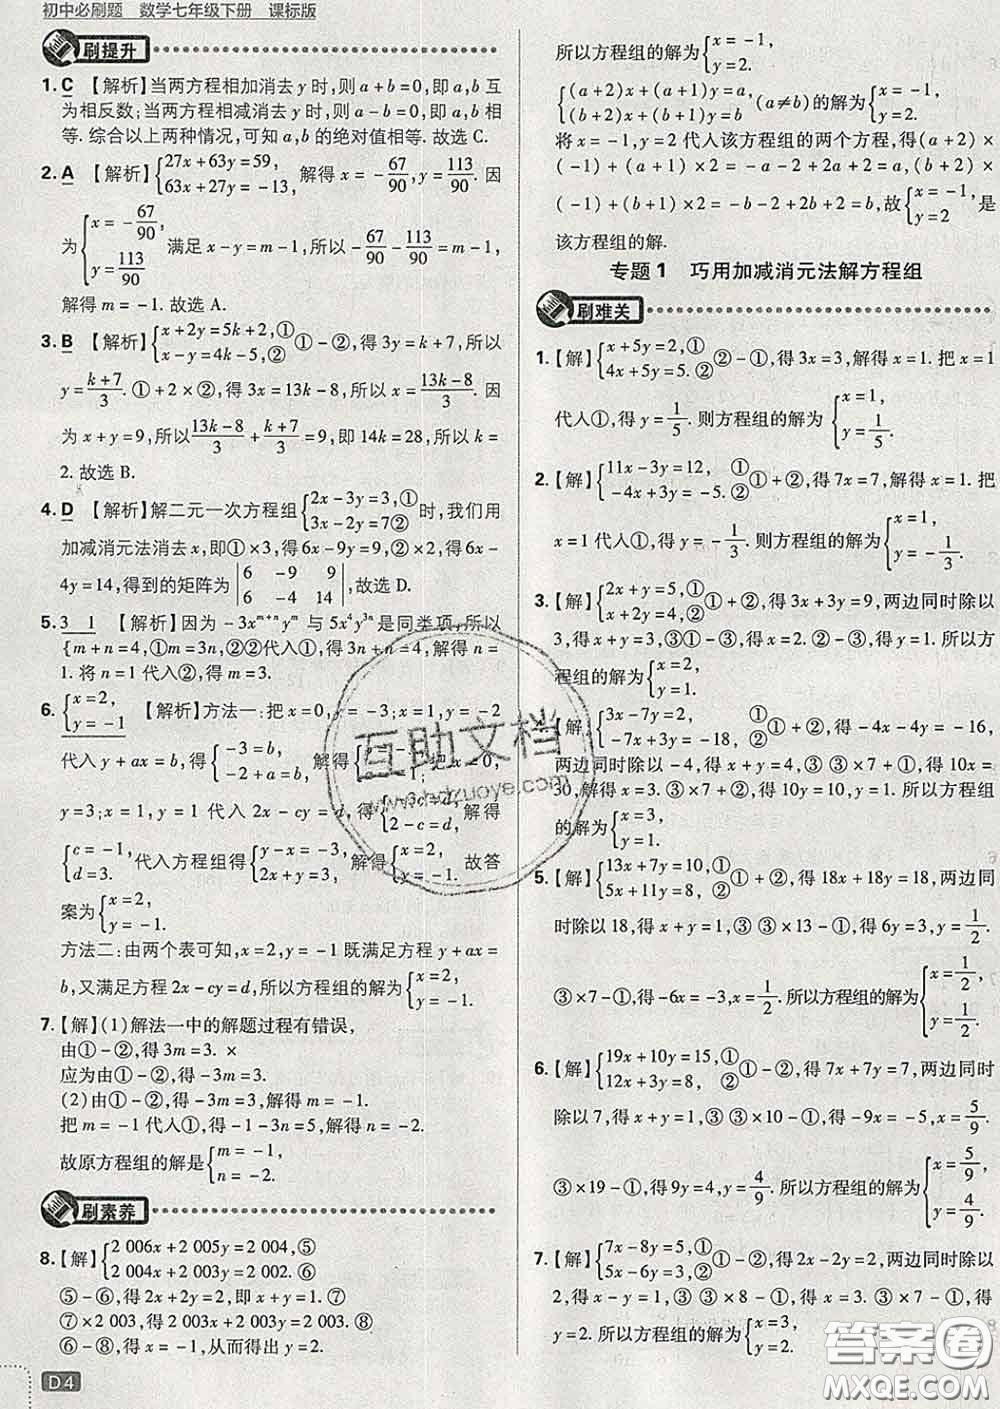 初中必刷题 数学七年级下册 课标版
刷提升
1. C 【解析】当两方程相加消去 y 时,则 a+b=0,即 a,b 互
为相反数;当两方程相减消去 y 时,则 a-b=0,即 a,b 相
等. 综合以上两种情况,可知 a,b 的绝对值相等. 故选 C.
2. A 【解析】{27x+63y=59, 63x+27y=-13, 解得 x=-67/90, y=113/90. 因
为{x=-67/90, y=113/90 满足 x-y=m-1,所以-67/90-113/90=m-1,
解得 m=-1. 故选 A.
3. B 【解析】{x+2y=5k+2,① x-y=4k-5,② ①-②,得 3y=k+7,所以
y=(k+7)/3. ①+2×②,得 3x=13k-8,所以 x=(13k-8)/3. 因
为 x+y=9,所以(13k-8)/3+(k+7)/3=9,即 14k=28,所以 k=
2. 故选 B.
4. D 【解析】解二元一次方程组{2x-3y=3,① 3x-2y=7② 时,我们用
加减消元法消去 x,即①×3,得 6x-9y=9,②×2,得 6x-
4y=14,得到的矩阵为|6 -9 9; 6 -4 14|,故选 D.
5. 3 1 【解析】因为 -3x^(m+n)y^m 与 5x^4y^(3n) 是同类项,所以
{m+n=4,①m=3n,②②代入①,得 3n+n=4,解得 n=
1. 将 n=1 代入②,得 m=3.
6. {x=2, y=-1 【解析】方法一:把 x=0,y=-3;x=1,y=-2
代入 y+ax=b,得{-3=b, -2+a=b, 解得 把 x=0,
y=3;x=1,y=2 代入 2x-cy=d,得 2-c=d, 解得
{c=-1, d=3. 代入方程组得{y-x=-3, 2x+y=3, 解得{x=2, y=-1. 故答
案为{x=2, y=-1.
方法二:由两个表可知,x=2,y=-1 既满足方程 y+ax=
b,又满足方程 2x-cy=d,所以方程组的解为{x=2, y=-1.
7.【解】(1)解法一中的解题过程有错误,
由①-②,得 3m=3. ×
应为由①-②,得-3m=3.
(2)由①-②,得-3m=3,解得 m=-1.
把 m=-1 代入①,得-1-3n=5,解得 n=-2.
故原方程组的解是{m=-1, n=-2.
刷素养
8.【解】{2 006x+2 005y=2 004,⑤ 2 004x+2 003y=2 002. ⑥
⑤-⑥,得 2x+2y=2,即 x+y=1. ⑦
⑦×2 003,得 2 003x+2 003y=2 003. ⑧
⑥-⑧,得 x=-1,从而得出 y=2.
D4
所以方程组的解为{x=-1, y=2.
{(a+2)x+(a+1)y=a, (b+2)x+(b+1)y=b (a≠b)的解为{x=-1, y=2.
将 x=-1,y=2 代入该方程组的两个方程,得(a+2)×
(-1)+(a+1)×2=-a-2+2a+2=a,(b+2)×
(-1)+(b+1)×2=-b-2+2b+2=b,故{x=-1, y=2 是
该方程组的解.
专题 1 巧用加减消元法解方程组
刷难关
1.【解】{x+5y=2,① 4x+5y=5. ② ②-①,得 3x=3,解得 x=1. 把 x=1
代入①,得 y=1/5. 则方程组的解为{x=1, y=1/5.
2.【解】{11x-3y=12, ① -4x+3y=-5. ② ①+②,得 7x=7,解得 x=1. 把
x=1 代入①,得 y=-1/3. 则方程组的解为{x=1, y=-1/3.
3.【解】{2x+y=5,① x+2y=4,② ①+②,得 3x+3y=9,两边同时除以
3,得 x+y=3,③①-③,得 x=2. ②-③,得 y=1. 所以方
程组的解为{x=2, y=1.
【解】{3x-7y=2, ① -7x+3y=-18, ② ①+②,得 -4x-4y=-16,
两边同时除以-4,得 x+y=4. ③ ③×7+①,得 10x=
30,解得 x=3. ③×7+②,得 10y=10,y=1. 所以方程组
的解为{x=3, y=1.
5.【解】{13x+7y=10,① 5x+11y=8, ② ①+②,得 18x+18y=18,两边同
时除以 18,得 x+y=1,③ ③×13-①,得 6y=3,y=1/2.
③×7-①,得-6x=-3,x=1/2. 所以方程组的解为{x=1/2, y=1/2.
6.【解】{19x+10y=15,① 12x+3y=8, ② ①-②,得 7x+7y=7,两边同时
除以 7,得 x+y=1,③ ③×10-①,得-9x=-5,x=5/9.
③×19-①,得 9y=4,y=4/9. 所以方程组的解为{x=5/9, y=4/9.
7.【解】{7x-8y=5,① 5x-6y=3,② ①-②,得 2x-2y=2,两边同时除以
2,得 x-y=1,③ ③×8-①,得 x=3. ③×7-①,得
y=2. 所以方程组的解为{x=3, y=2.
互助文档
www.hdzuoye.com
答案圈
MXQE.COM